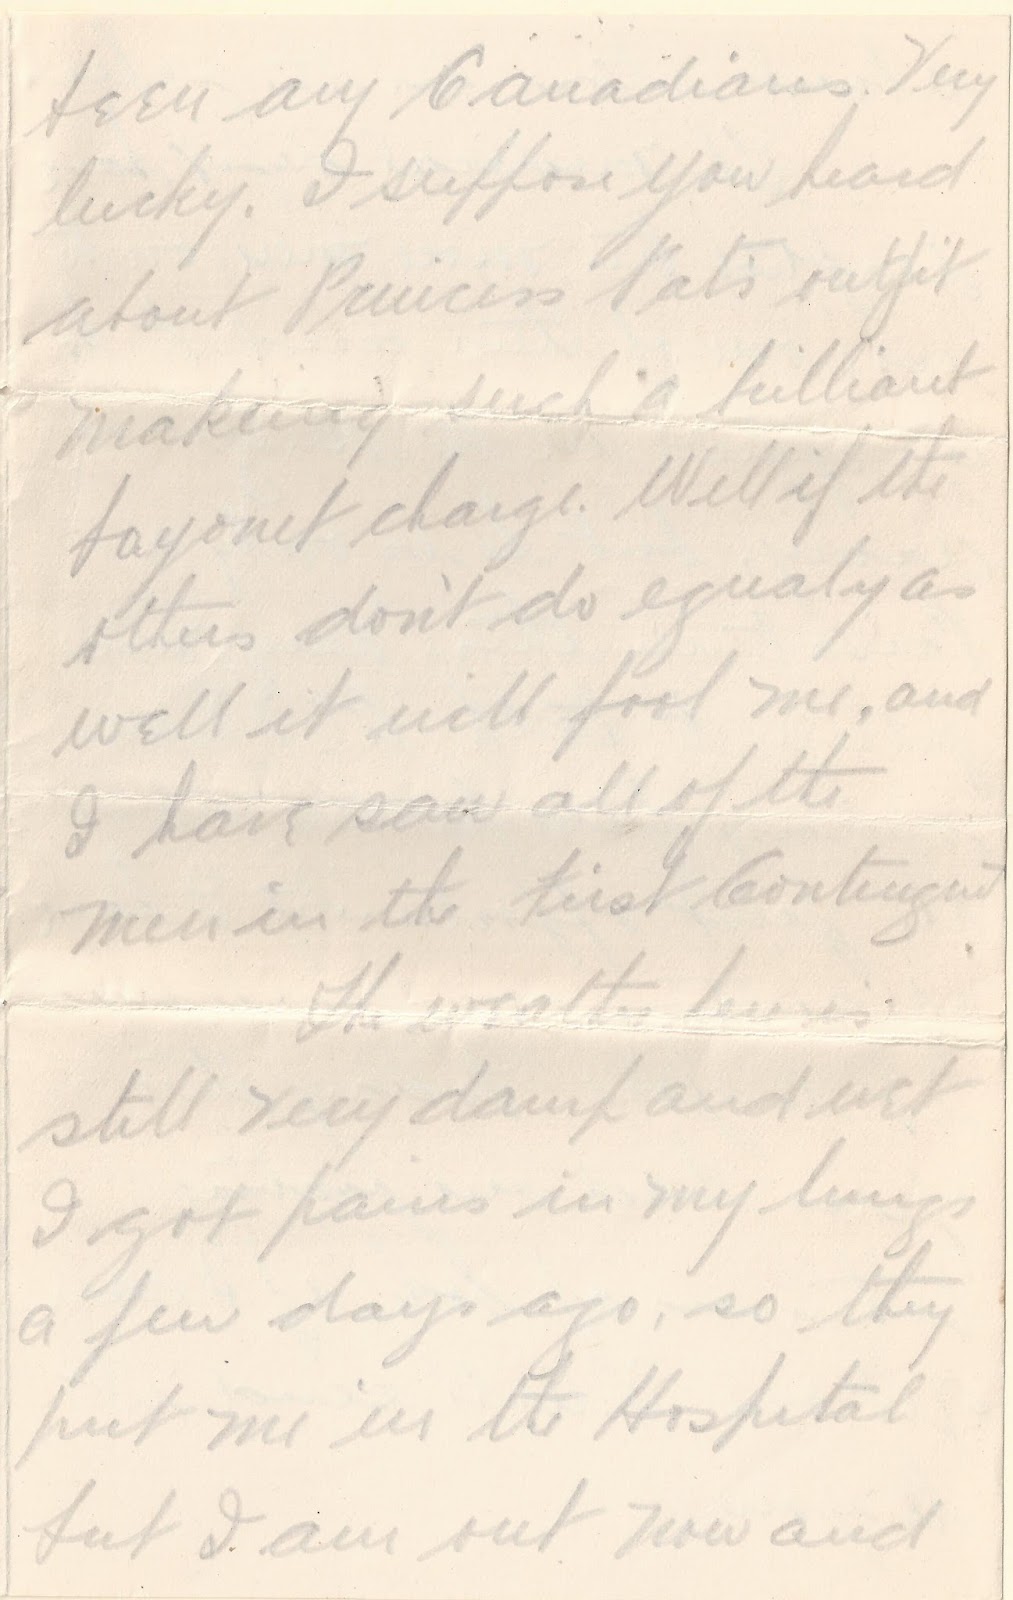 been any Canadians. Very
lucky. I suppose you heard
about Princess Pat's outfit
makeing such a brilliant
bayonet charge. Well if the
others don't do equaly as
well it will fool me, and
I have saw all of the
men in the First Contingent
The weather here is
still very damp and wet
I got pains in my lungs
a few days ago, so they
put me in the Hospital
but I am out now and